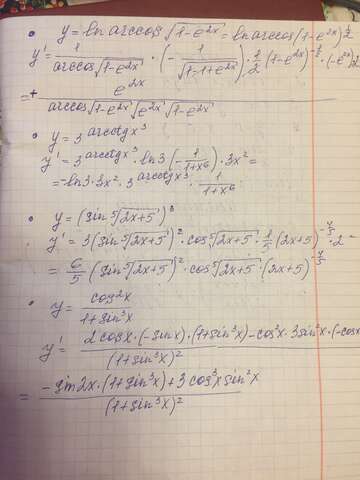 • y = ln arccos √(1-e^2x) = ln arccos (1-e^2x)^1/2
y' = 1/(arccos √(1-e^2x)) · (- 1/√(1-1+e^2x)) · 1/2 (1-e^2x)^-1/2 · (-e^2x)2
= + e^2x/(arccos √(1-e^2x) √(e^2x) √(1-e^2x))
• y = 3^arcctgx^3
y' = 3^arcctgx^3 · ln3 (- 1/(1+x^6)) · 3x^2 =
= -ln3 · 3x^2 · 3^arcctgx^3 · 1/(1+x^6)
• y = (sin ⁵√(2x+5))^3
y' = 3(sin ⁵√(2x+5))^2 · cos ⁵√(2x+5) · 1/5 (2x+5) · 2 =
= 6/5 (sin ⁵√(2x+5))^2 · cos ⁵√(2x+5) · (2x+5)
• y = cos^2x/(1+sin^3x)
y' = (2cosx · (-sinx) · (1+sin^3x) - cos^2x · 3sin^2x · (-cosx
/(1+sin^3x)^2
= (-sin2x · (1+sin^3x) + 3cos^3x sin^2x)/(1+sin^3x)^2